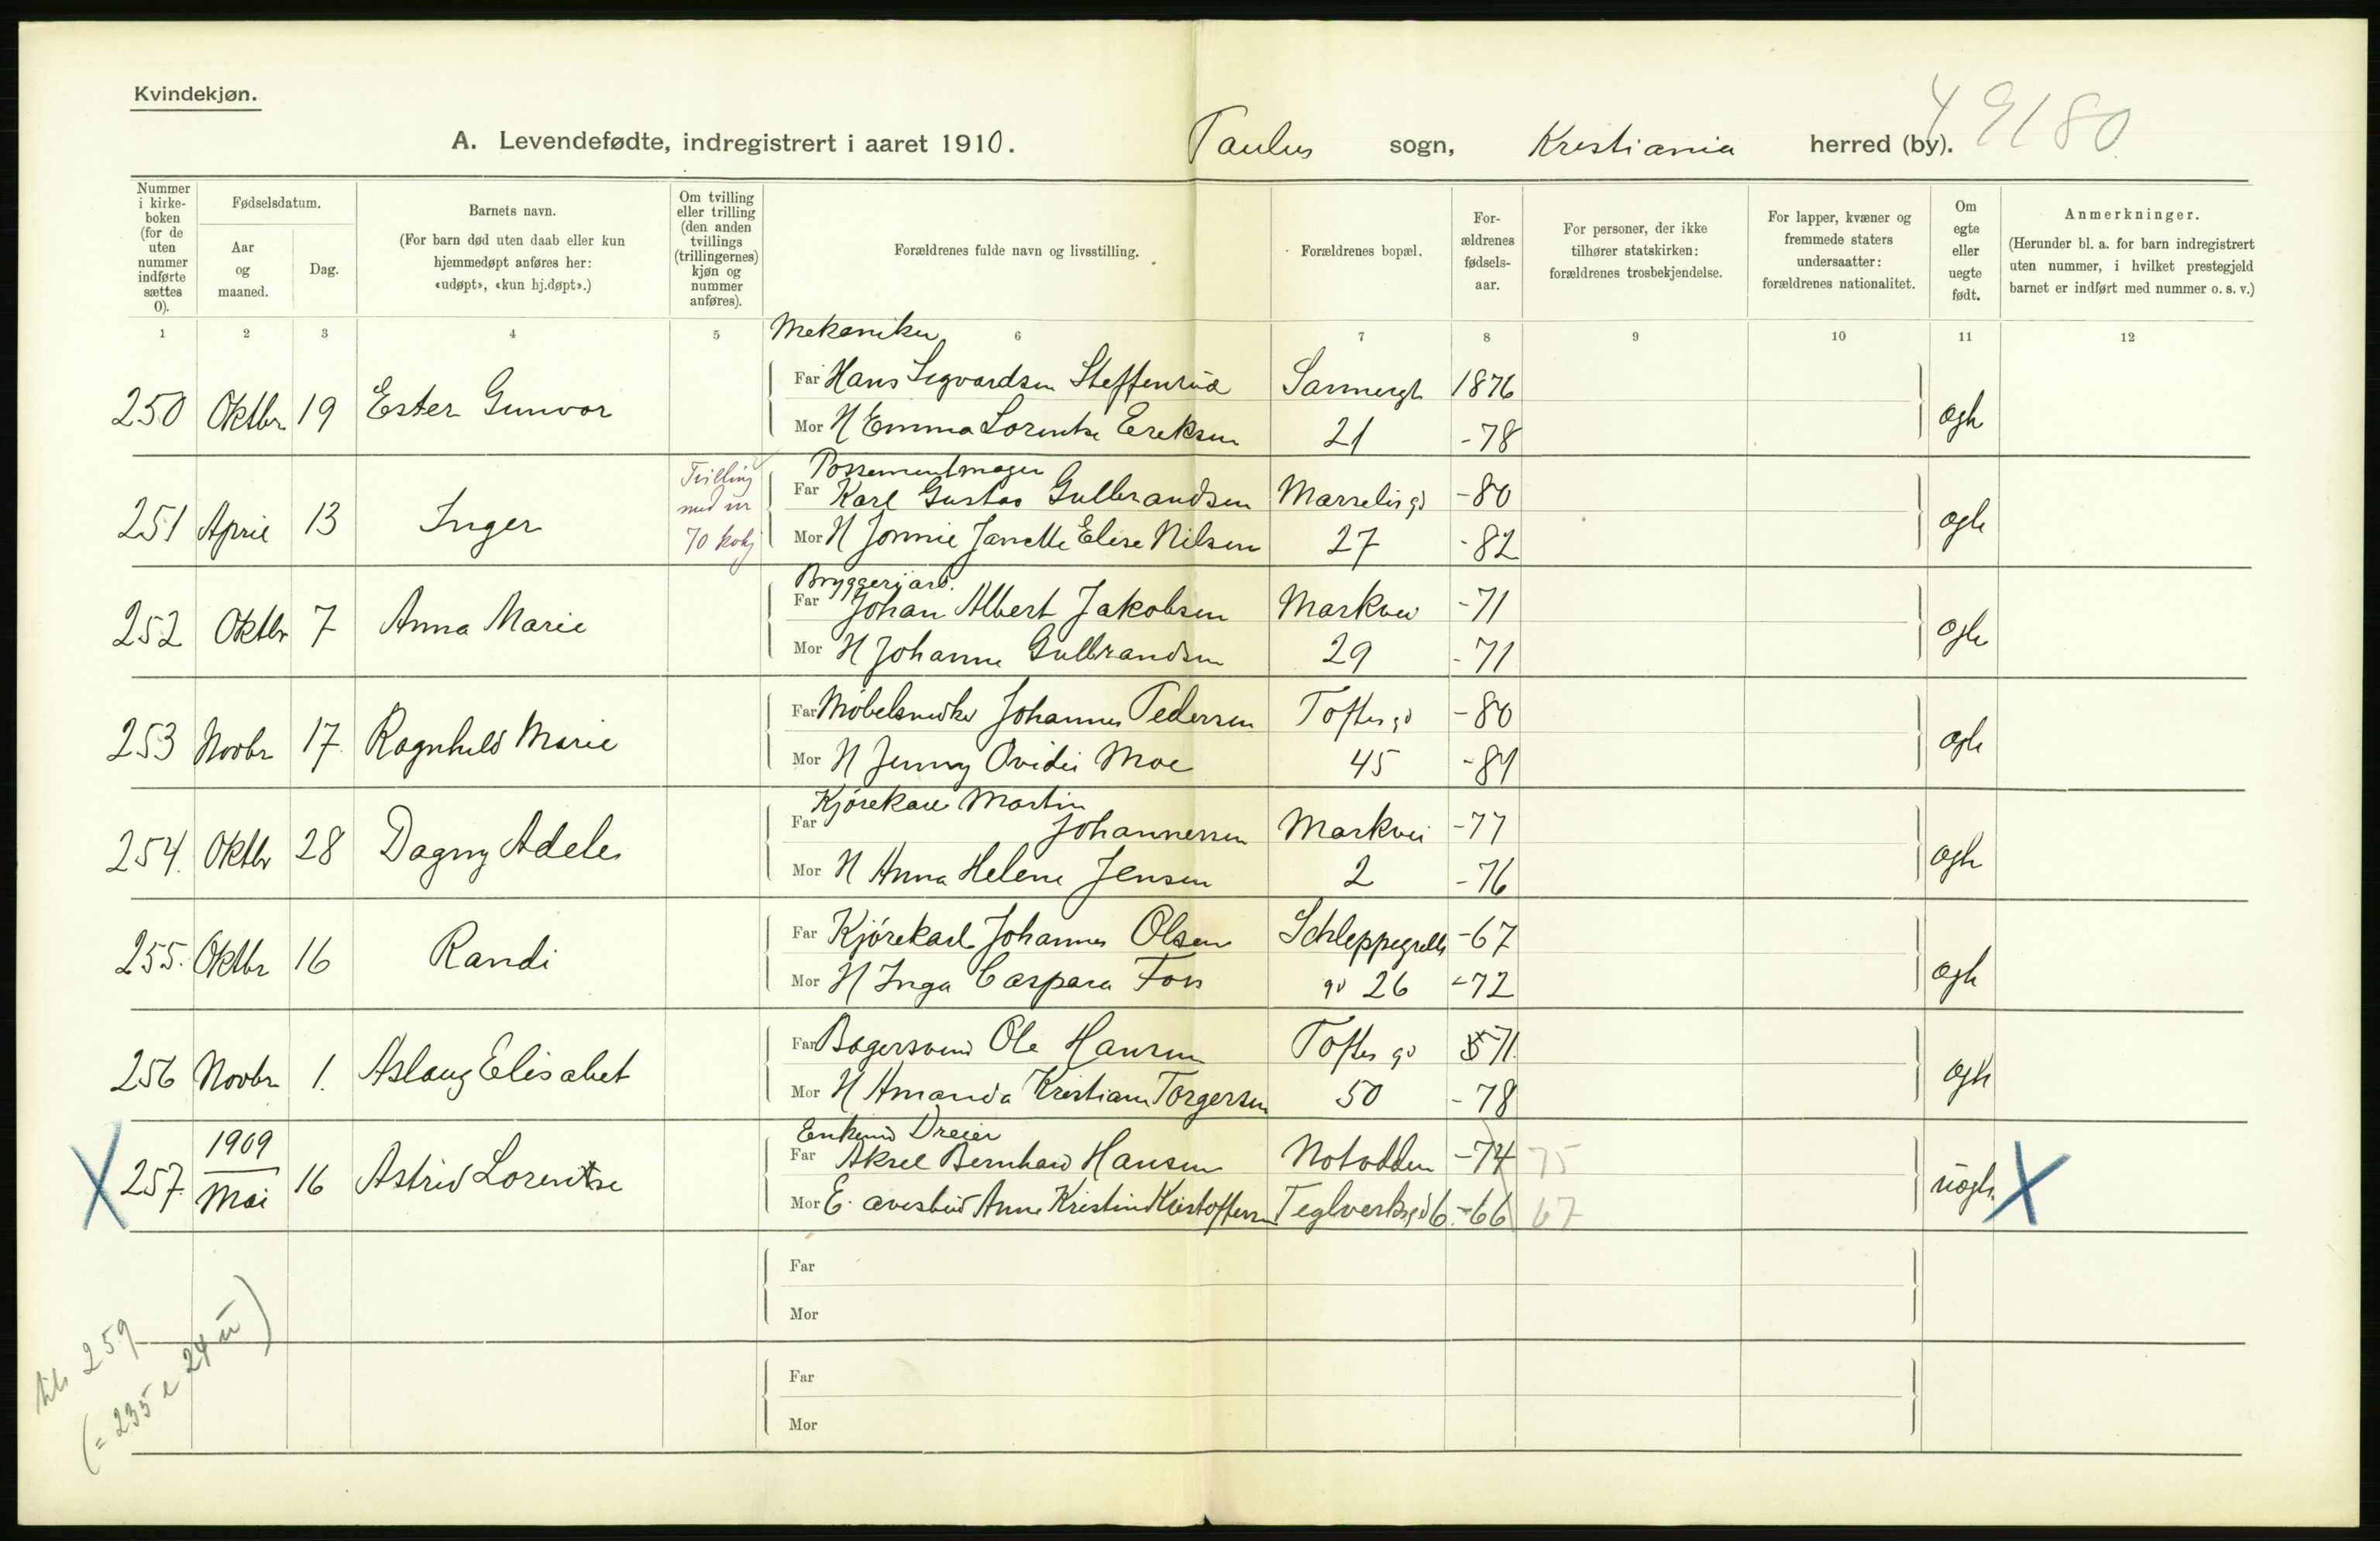 Kvindekjøn.
49180
A. Levendefødte, indregistrert i aaret 1910. Paulus sogn, Kristiania herred (by).
Nummer i kirke-boken (for de uten nummer indførte sættes 0).
Fødselsdatum.
Aar og maaned.
Dag.
Barnets navn.
(For barn død uten daab eller kun hjemmedøpt anføres her: «udøpt», «kun hj.døpt».)
Om tvilling eller trilling (den anden tvillings (trillingernes) kjøn og nummer anføres).
Forældrenes fulde navn og livsstilling.
Forældrenes bopæl.
For-ældrenes fødsels-aar.
For personer, der ikke tilhører statskirken: forældrenes trosbekjendelse.
For lapper, kvæner og fremmede staters undersaatter: forældrenes nationalitet.
Om egte eller uegte født.
Anmerkninger.
(Herunder bl. a. for barn indregistrert uten nummer, i hvilket prestegjeld barnet er indført med nummer o. s. v.)
1 2 3 4 5 6 7 8 9 10 11 12
Mekaniker
Far Hans Sigvardsen Steffenrud Sannergt 1876
250 Oktbr. 19 Ester Gunvor ogh
Mor H Emma Lorentse Ereksen 21 -78
Possementmager
Far Karl Gustav Gulbrandsen Marselisgd -80
251 April 13 Inger Tvilling med nr 70 kokj ogh
Mor H Jonnie Janette Elise Nilsen 27 -82
Bryggeriarb.
Far Johan Albert Jakobsen Markvei -71
252 Oktbr 7 Anna Marie ogh
Mor H Johanne Gulbrandsen 29 -71
Far Møbelsnedker Johannes Pedersen Toftes gd -80
253 Novbr 17. Ragnhild Marie ogh
Mor H Jenny Ovidie Moe 45 -81
Kjørekarl Martin
Far Johannessen Markvei -77
254. Oktbr 28 Dagny Adele ogh
Mor H Anna Helene Jensen 2 -76
Far Kjørekarl Johannes Olsen Schleppegrells -67
255. Oktbr 16 Randi ogh
Mor H Inga Caspara Foss gd 26 -72
Far Bagersvend Ole Hansen Toftes gd 71.
256 Novbr 1. Aslaug Elisabet ogh
Mor H Amanda Kristiane Torgersen 50 -78
Enkemd Dreier
Far Aksel Bernhard Hansen Notodden -74 75
X 257. 1909 Mai 16 Astrid Lorentse uogh. X
Mor E. Anne Kristine Kristoffersen Teglverksgd 6 -66 67
Far
Mor
Far
Mor
til 259
(= 235 e 24 u)